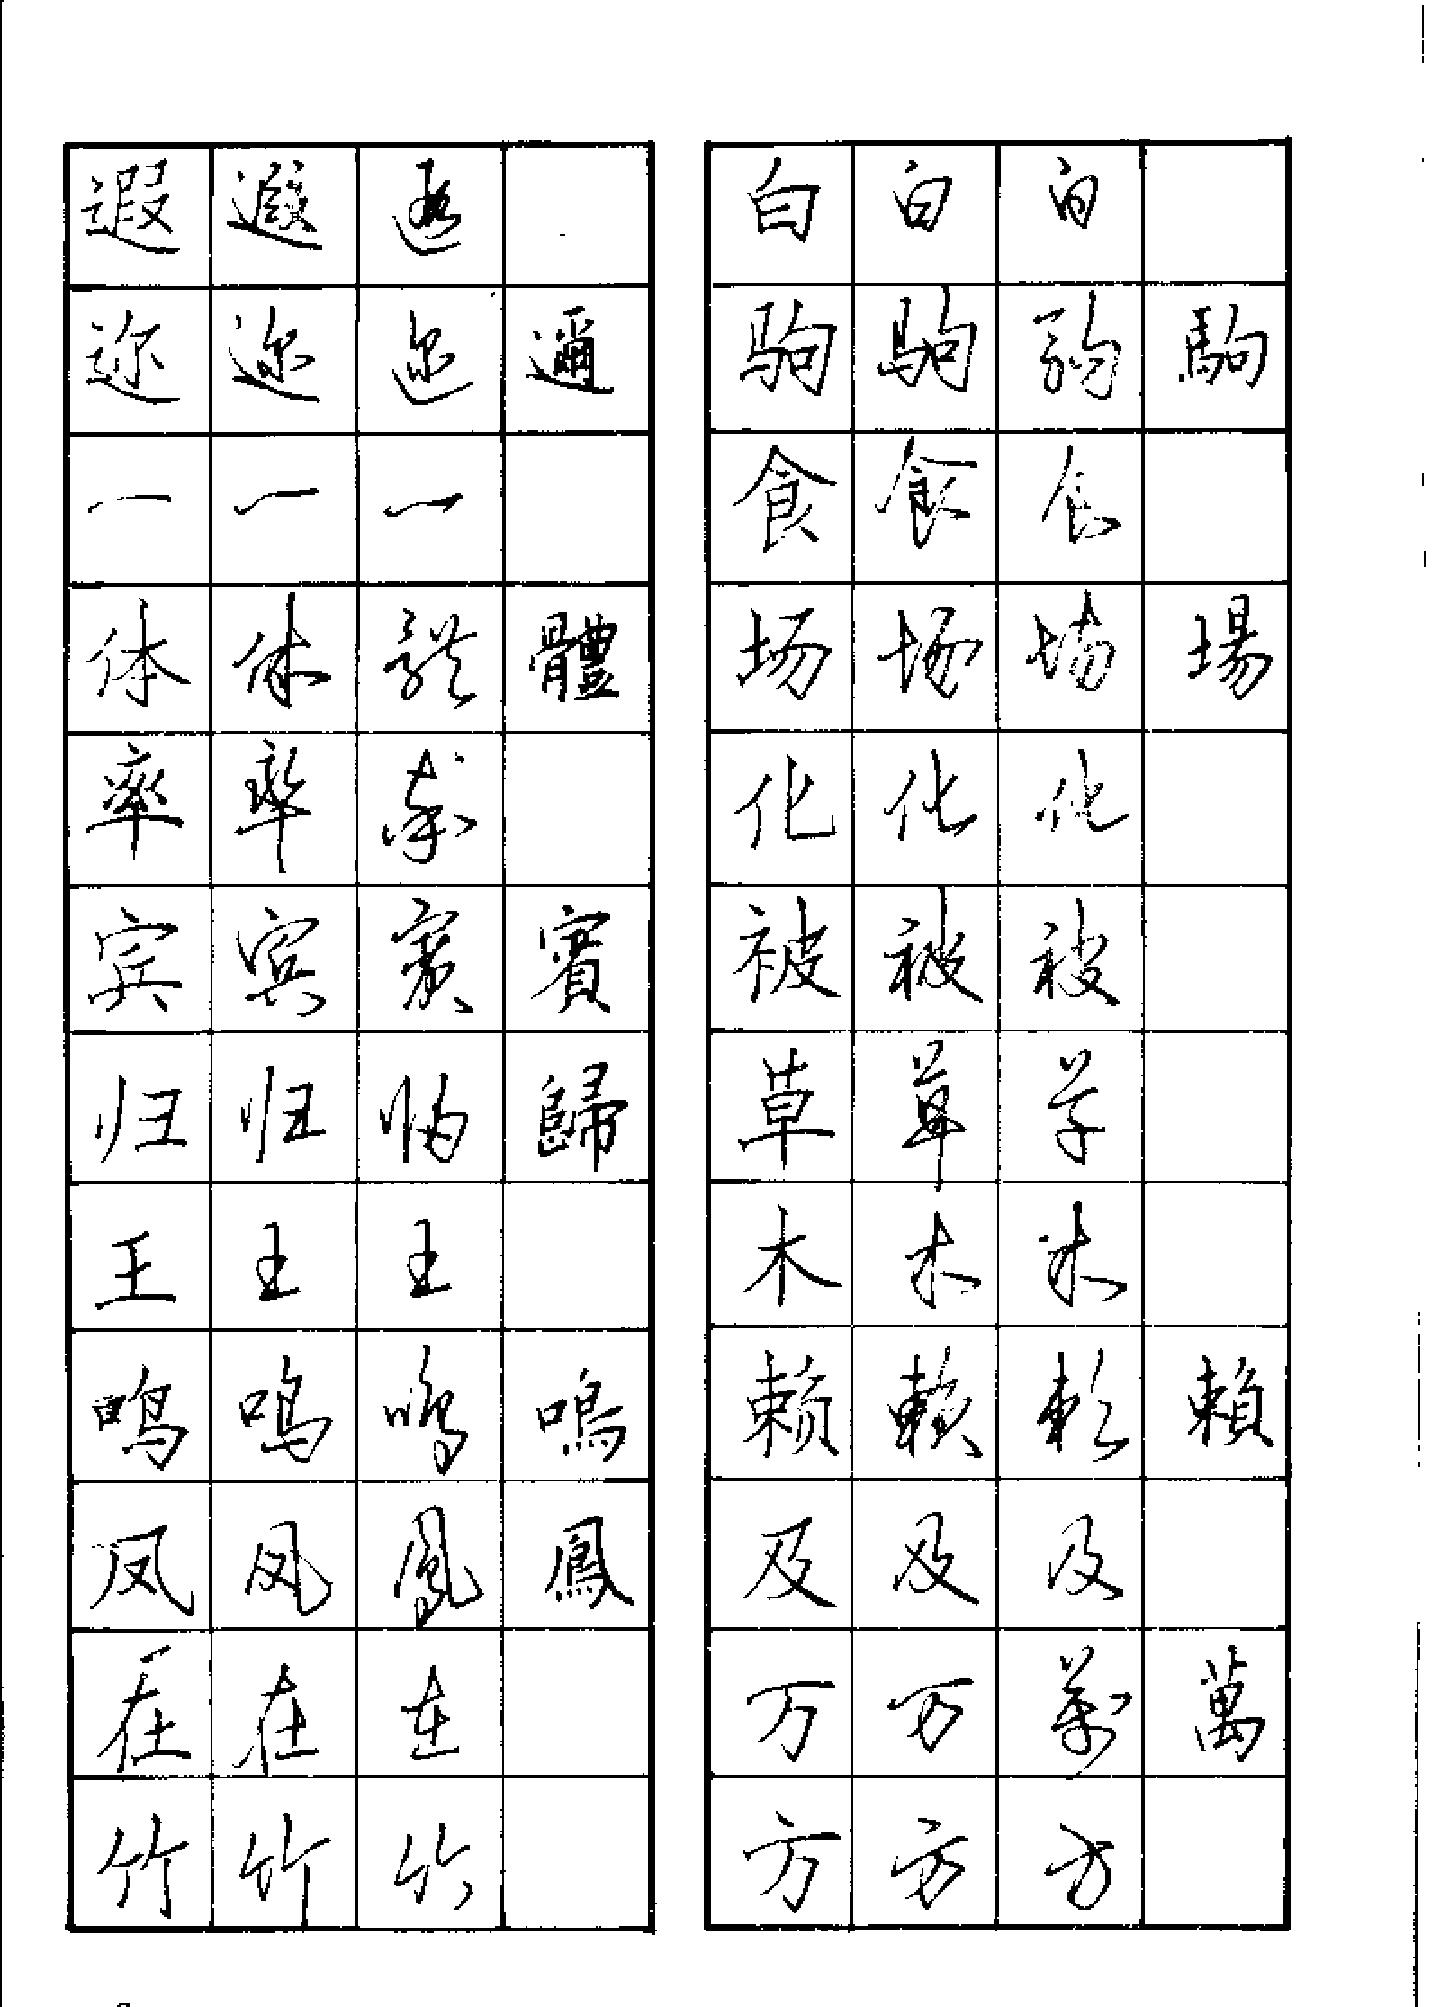 遐 遐 遐
迩 迩 迩 邇
一 一 一
体 体 体 體
率 率 率
宾 宾 賓 賓
归 归 归 歸
王 王 王
鸣 鸣 鸣 鳴
凤 凤 鳳 鳳
在 在 在
竹 竹 竹
白 白 白
驹 驹 驹 駒
食 食 食
场 场 场 場
化 化 化
被 被 被
草 草 草
木 木 木
赖 赖 赖 賴
及 及 及
万 万 萬 萬
方 方 方